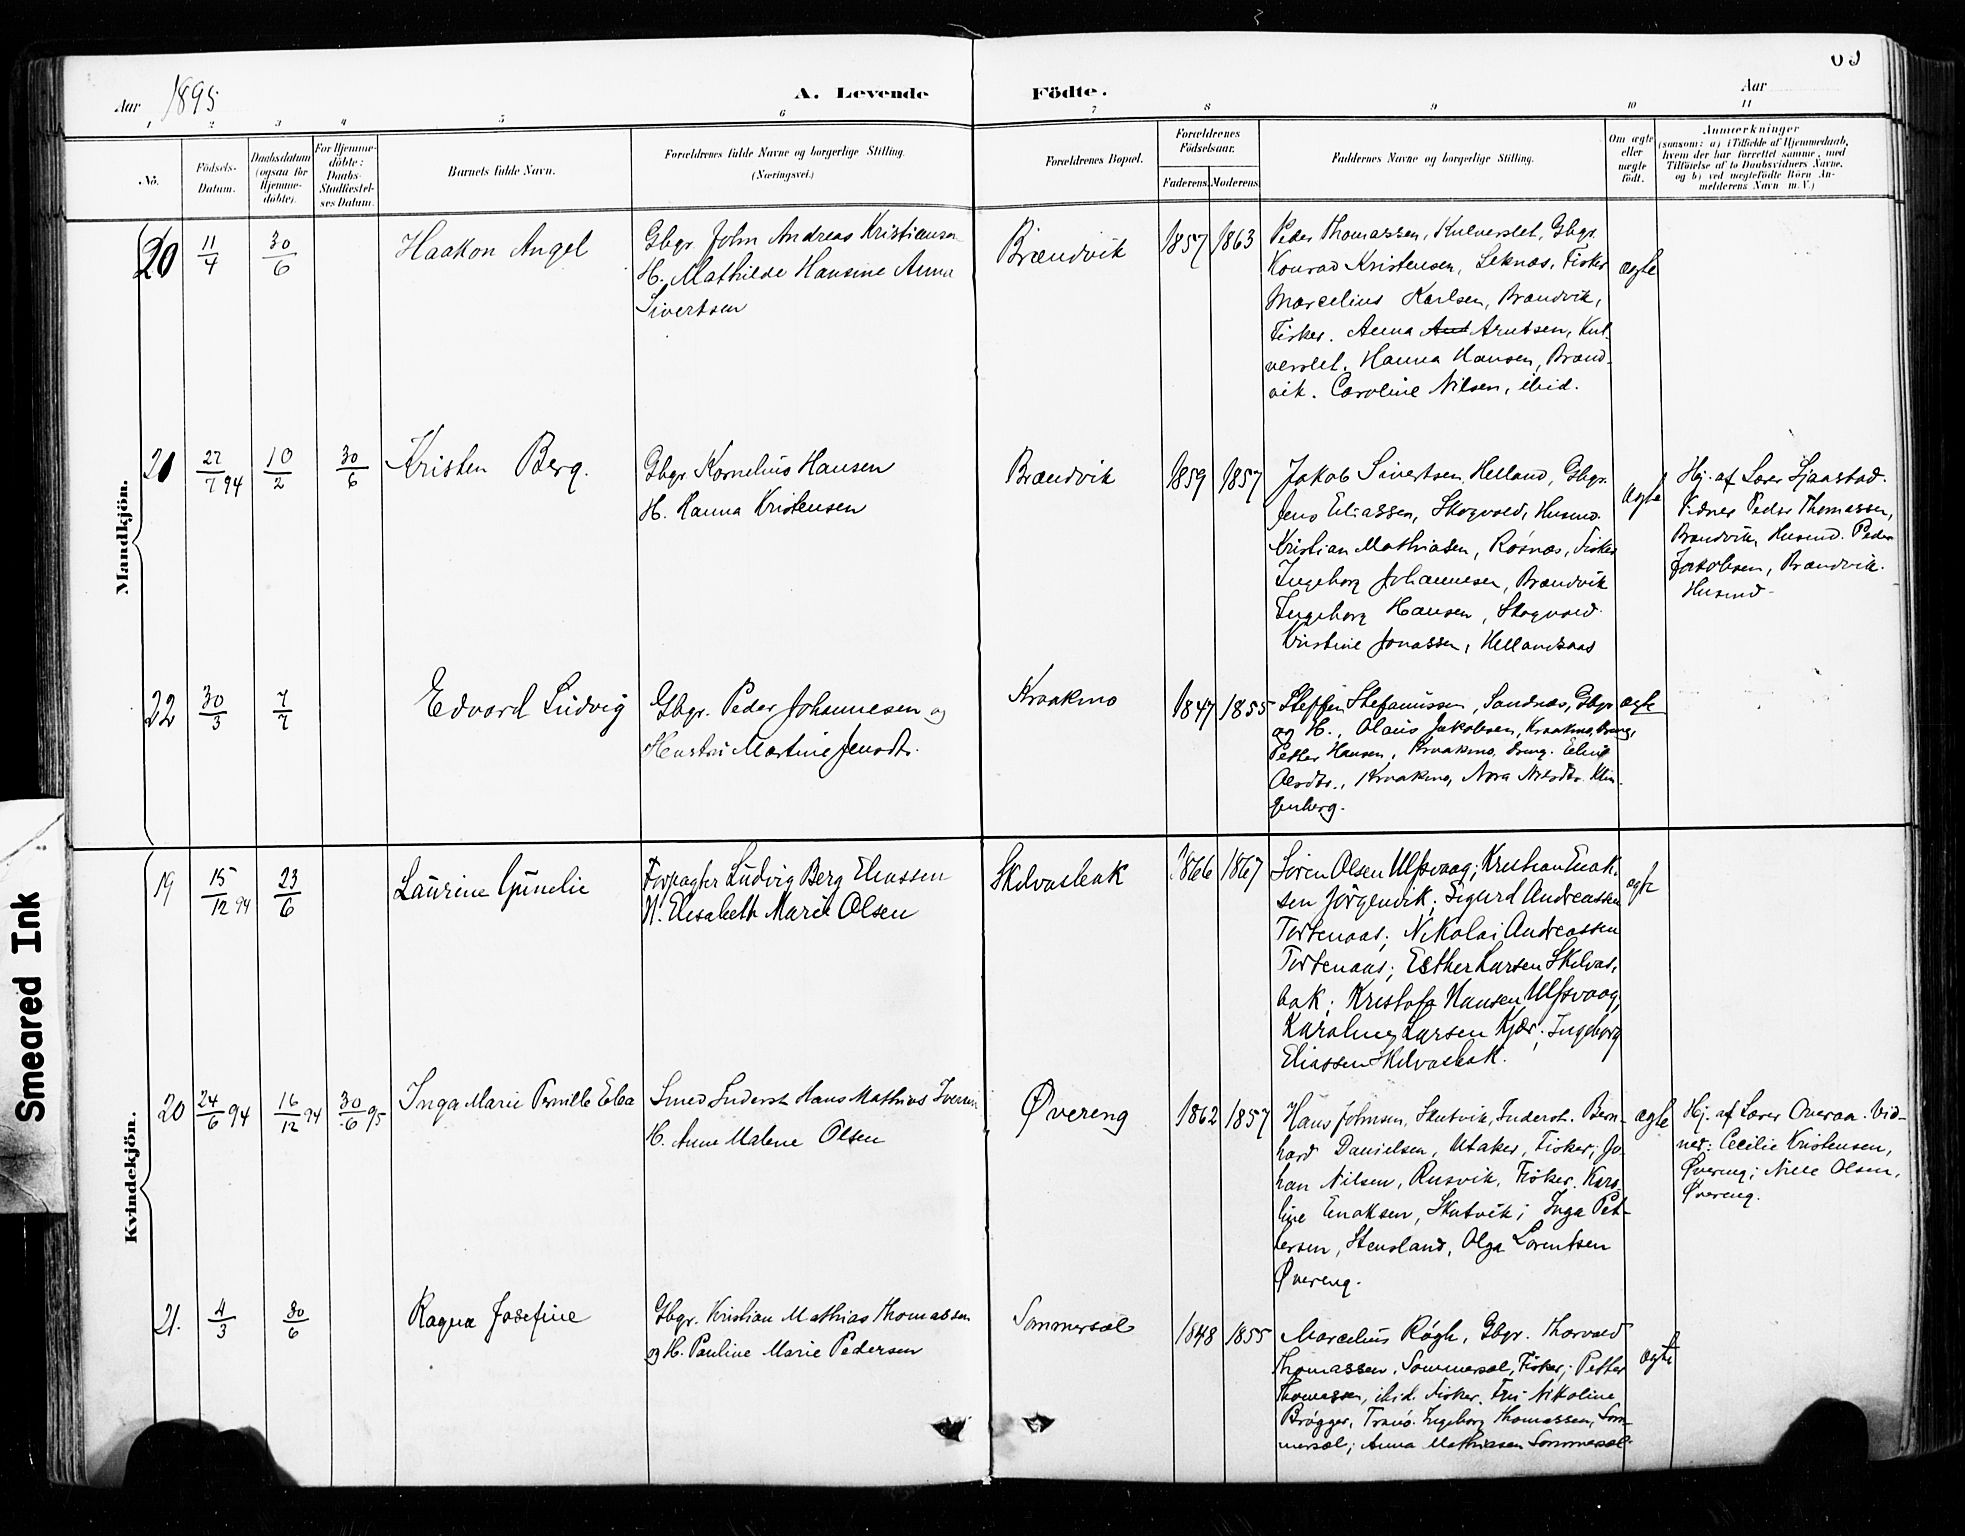 69
Aar 1895
A. Levende Födte.
Aar
1 2 3 4 5 6 7 8 9 10 11
No.
Födsels-
Datum.
Daabsdatum
(ogsaa for
Hjemme-
döbte).
For Hjemme-
döbte:
Daabs-
Stadfæstel-
ses Datum.
Barnets fulde Navn.
Forældrenes fulde Navne og borgerlige Stilling.
(Næringsvei.)
Forældrenes Bopæl.
Forældrenes
Födselsaar.
Faderens. Moderens.
Faddernes Navne og borgerlige Stilling.
Om ægte
eller
uægte
födt.
Anmærkninger
(saasom: a) i Tilfælde af Hjemmedaab,
hvem der har forrettet samme, med
Tilföielse af to Daabsvidners Navne,
og b) ved uægtefödte Börn An-
melderens Navn m. V.)
Mandkjön.
20
11/4
30/6
Haakon Angel
Gbgr. John Andreas Kristiansen
H. Mathilde Hansine Anna
Sivertsen
Brændvik
1857 1863
Peder Thomassen, Kulverslet, Gbgr.
Konrad Kristensen, Leknæs, Fisker
Marcelius Karlsen, Brændvik,
Fisker. Anna Arntsen, Kul-
verslet. Hanna Hansen, Brænd-
vik. Caroline Nilsen, ibid.
ægte
21
27/7 94
10/2
30/6
Kristen Berg.
Gbgr. Kornelius Hansen
H. Hanna Kristensen
Brændvik
1859 1857
Jakob Sivertsen, Helland, Gbgr.
Jens Eliassen, Skogvold, Husmd.
Kristian Mathiasen, Rösnæs, Fisker
Ingeborg Johannesen, Brændvik
Ingeborg Hansen, Skogvold.
Kristine Jonassen, Hellandsaas
ægte
Hj. af Lærer Sjaastad.
Vidner Peder Thomassen,
Brændvik, Husmd. Peder
Jakobsen, Brændvik.
Husmd.
22
30/3
7/7
Edvard Ludvig
Gbgr. Peder Johannesen og
Hustru Martine Jensdtr.
Kraakmo
1847 1855
Steffen Stefanussen, Sandnæs, Gbgr
og H., Olaus Jakobsen, Kraakmo, Dreng,
Petter Hansen, Kraakmo, Dreng.
Olsdtr., Kraakmo, Nora Nilsdtr. Klin-
genberg.
ægte
Kvindekjön.
19
15/12 94
23/6
Laurine Gunelie
Forpagter Ludvig Berg Eliassen
H. Elisabeth Marie Olsen
Skilvasbak
1866 1867
Sören Olsen Ulfsvaag; Kristian Enok-
sen Jörgenvik; Sigurd Andreassen
Tortenaas; Nikolai Andreassen
Tortenaas; Esther Larsen Skilvas-
bak; Kristofa Hansen Ulfsvaag,
Karoline Larsen Kjær; Ingeborg
Eliassen Skilvasbak.
ægte
20
24/6 94
16/12 94
30/6 95
Inga Marie Pernille Ebba
Smed Inderst Hans Mathias Iversen
H. Anne Malene Olsen
Øvereng
1862 1857
Hans Johnsen, Skutvik, Inderst. Bern-
hard Danielsen, Utaker, Fisker; Jo-
han Nilsen, Rusvik, Fisker. Karo-
line Enoksen, Skutvik; Inga Pet-
tersen, Stensland, Olga Lorentsen
Øvereng.
ægte
Hj. af Lærer Overaa. Vid-
ner: Cecilie Kristensen,
Øvereng; Nille Olsen,
Øvereng.
21.
4/3
30/6
Ragna Josefine
Gbgr. Kristian Mathias Thomassen
og H. Pauline Marie Pedersen
Sommersæl
1848 1855
Marcelius Rögh, Gbgr. Thorvald
Thomassen, Sommersæl, Fisker; Petter
Thomassen, ibid. Fisker. Fru Nikoline
Brögger, Tranö. Ingeborg Thomassen, Som-
mersæl; Anna Mathiassen Sommersæl.
ægte
Smeared Ink